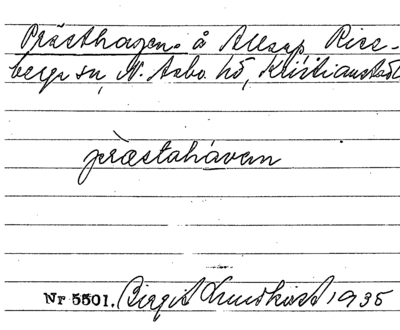 Prästhagen. å Allsap, Riss-
berga sn, N. Åsbo hd, Kristianstads
præstahávæn
Nr 5501. Birgit Lundkvist 1935